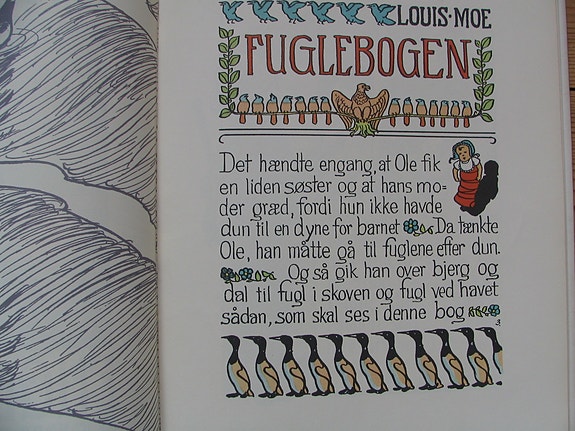 LOUIS·MOE
FUGLEBOGEN
Det hændte engang, at Ole fik
en liden søster og at hans mo=
der græd, fordi hun ikke havde
dun til en dyne for barnet Da tænkte
Ole, han måtte gå til fuglene efter dun.
Og så gik han over bjerg og
dal til fugl i skoven og fugl ved havet
sådan, som skal ses i denne bog